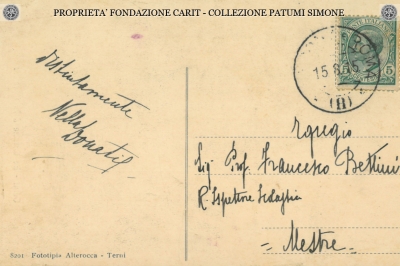 PROPRIETA' FONDAZIONE CARIT - COLLEZIONE PATUMI SIMONE
distintamente
Nella
Donati
ROMA
15.8
(II)
5
Egregio
Sig Prof. Francesco Bettini
R. Ispettore Scol
= Mestre =
Fototipia Alterocca - Terni